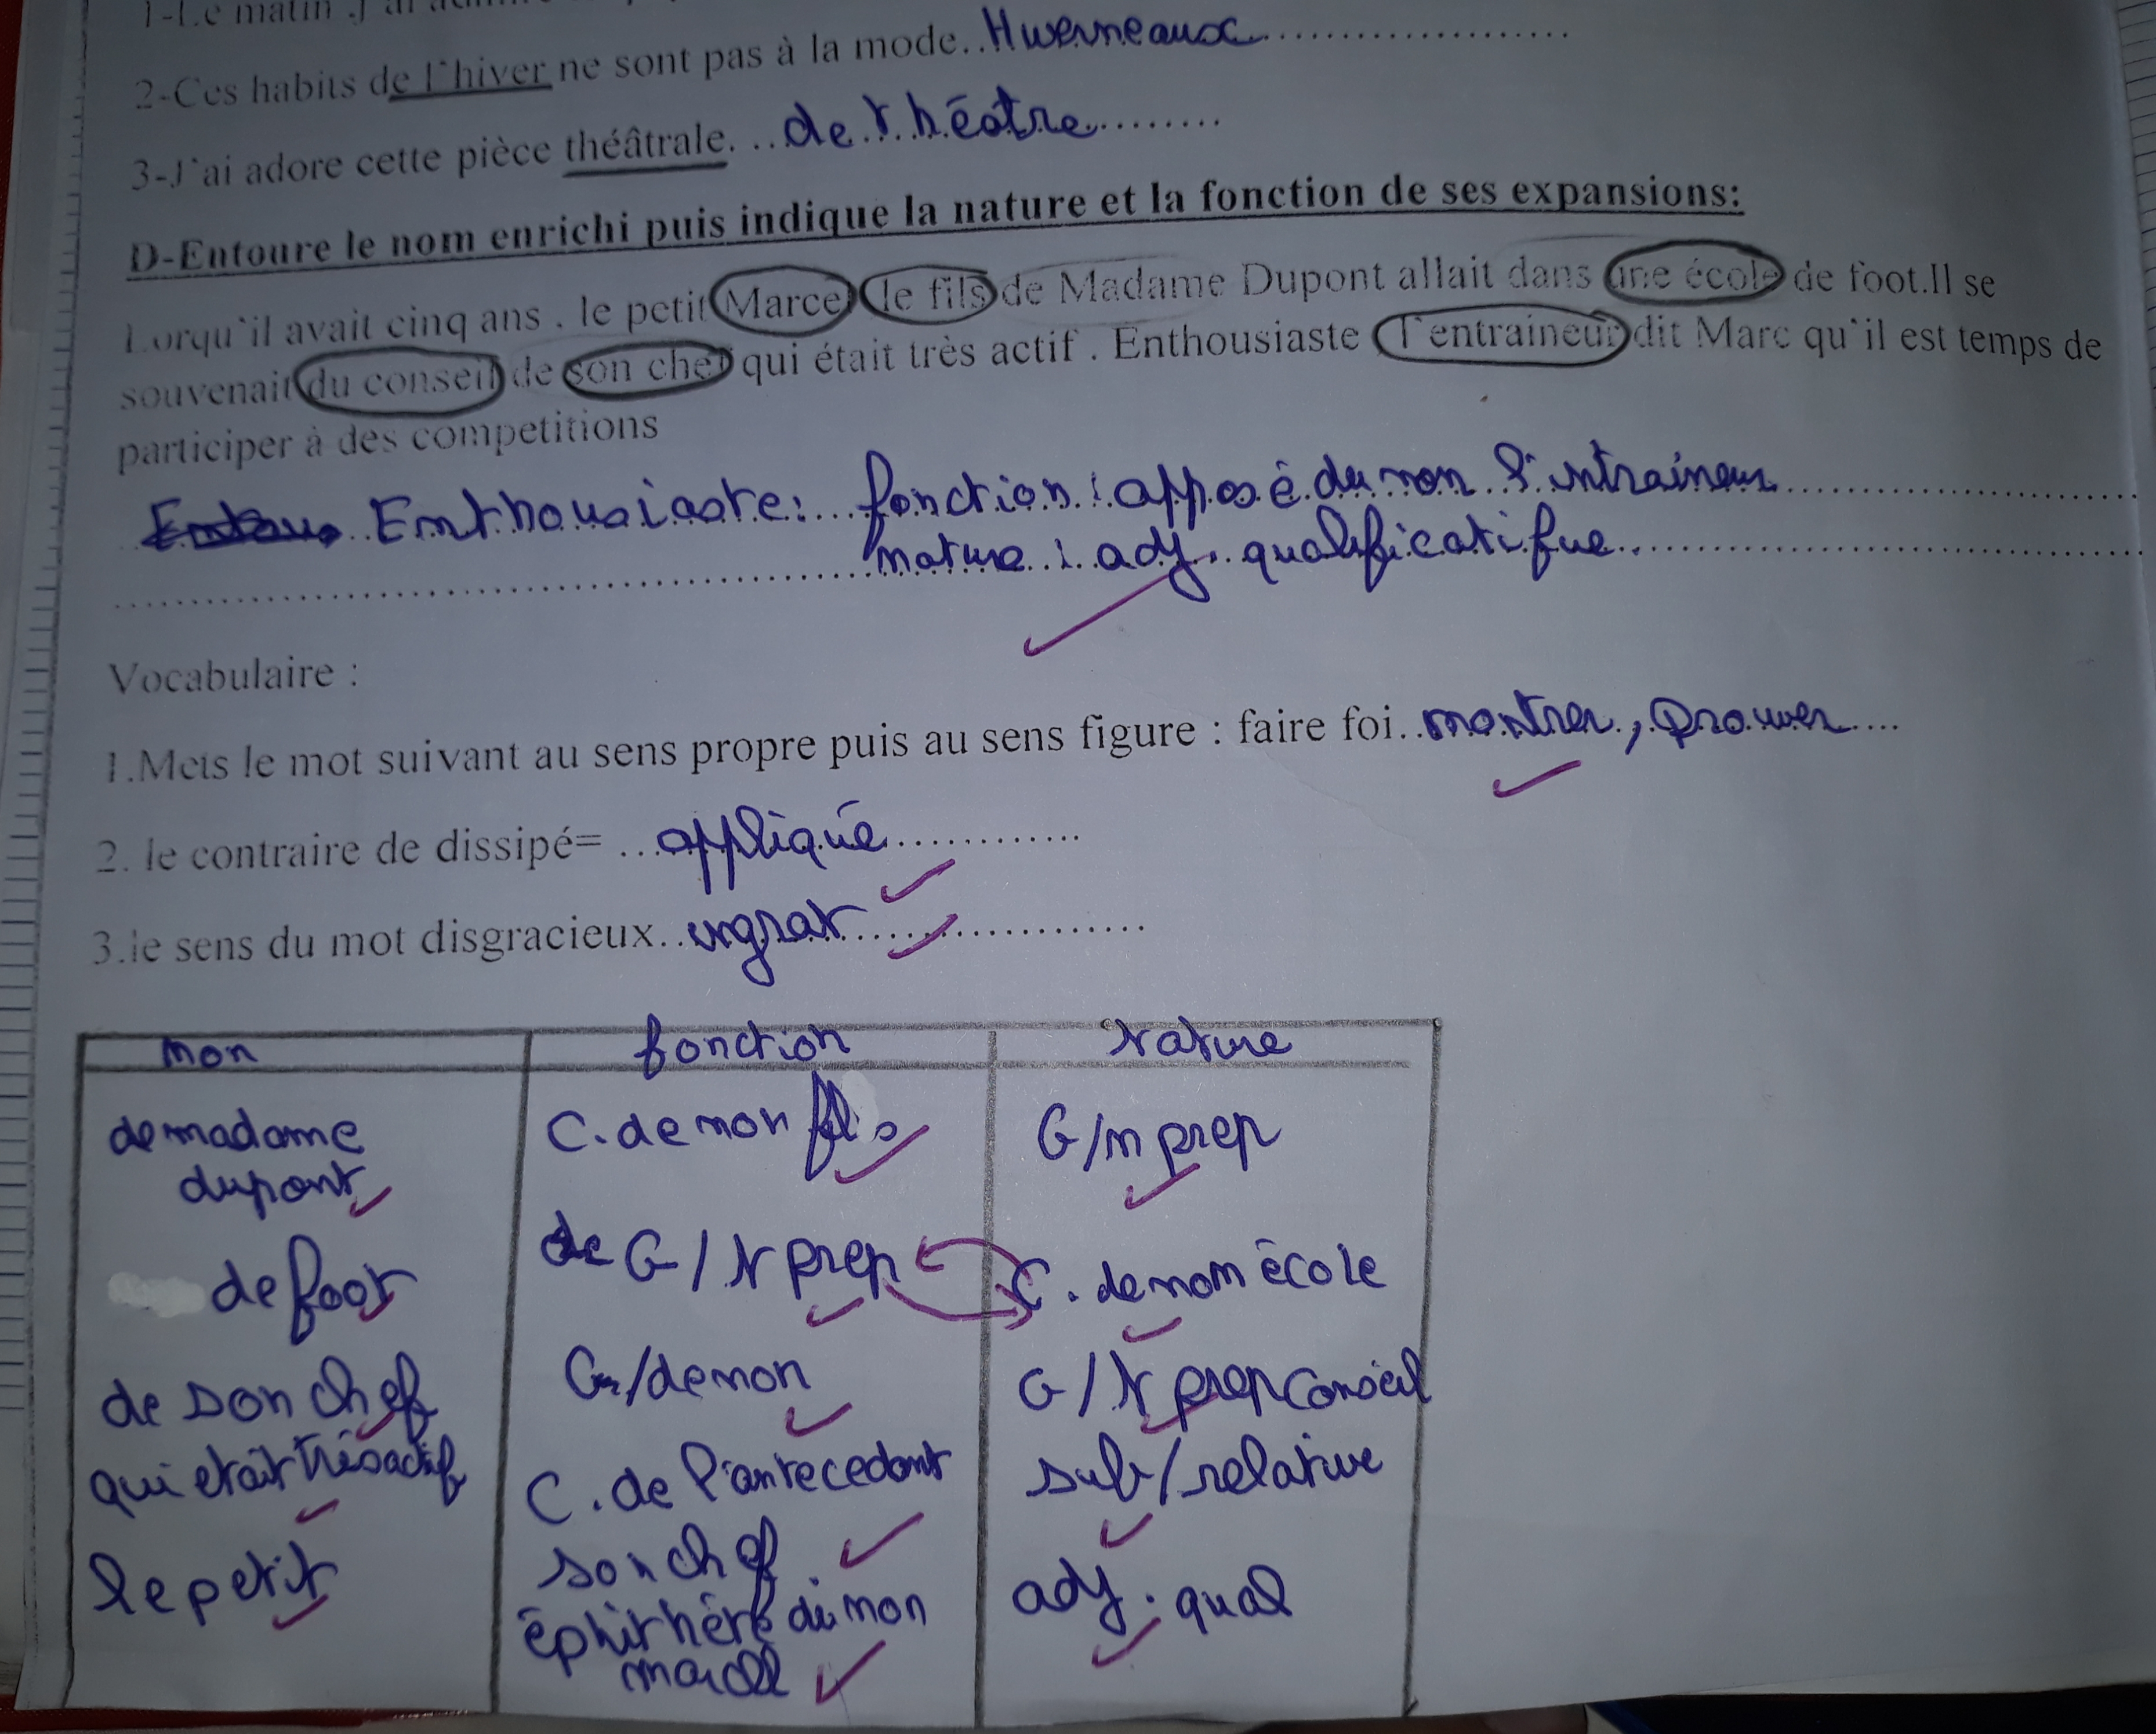 1-Le matin j'ai
2-Ces habits de l'hiver ne sont pas à la mode..Hwerneaux.....................
3-J'ai adore cette pièce théâtrale. ...de théatre.........
D-Entoure le nom enrichi puis indique la nature et la fonction de ses expansions:
Lorqu'il avait cinq ans . le petit Marcel le fils de Madame Dupont allait dans une école de foot.Il se
souvenait du conseil de son chef qui était très actif . Enthousiaste l'entraineur dit Marc qu'il est temps de
participer à des competitions
Enthousiaste:...fonction : apposé du non l'intraineur
nature : adj. qualificatifue
Vocabulaire :
1.Mets le mot suivant au sens propre puis au sens figure : faire foi..montrer, prouver....
2. le contraire de dissipé= ...appliqué............
3.le sens du mot disgracieux..ingrat...................
non fonction Nature
de madame C. de non fils G/n prep
dupont
de foot de G/N prep C. de nom école
de son chef G/de non G/N prep conseil
qui etait trés actif C. de l'antecedant sub/relative
son chef
le petit éphithéte du non adj. qual